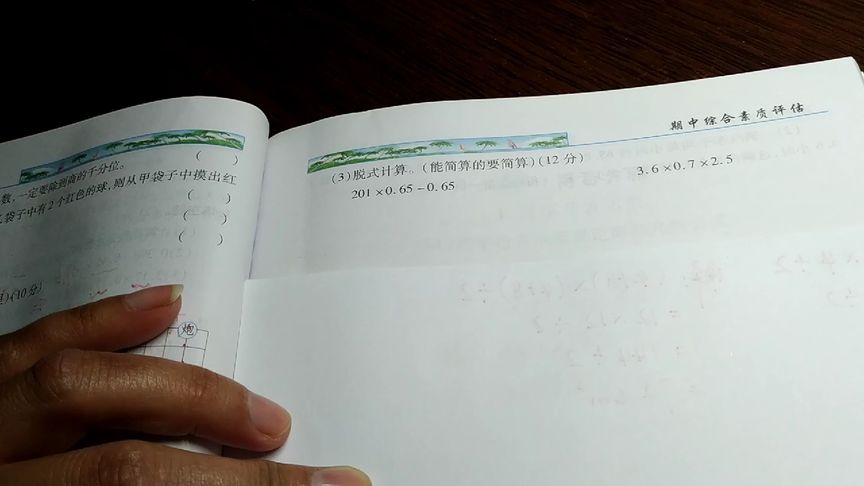 期中综合素质评估
(3)脱式计算。(能简算的要简算)(12分)
201×0.65-0.65
3.6×0.7×2.5
数,一定要除到商的千分位。
( )
袋子中有2个红色的球,则从甲袋子中摸出红
( )
( )
( )
(10分)
炮